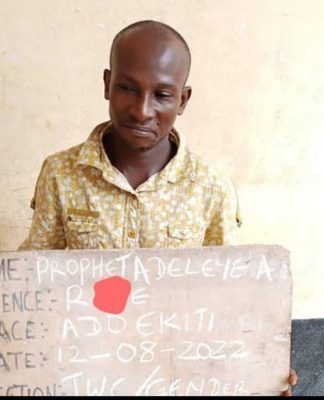 ME:- PROPHET ADELEYE A.
ENCE:- R E
ACE:- ADO EKITI
ATE:- 12-08-2022
ECTION:- JWC/GENDER